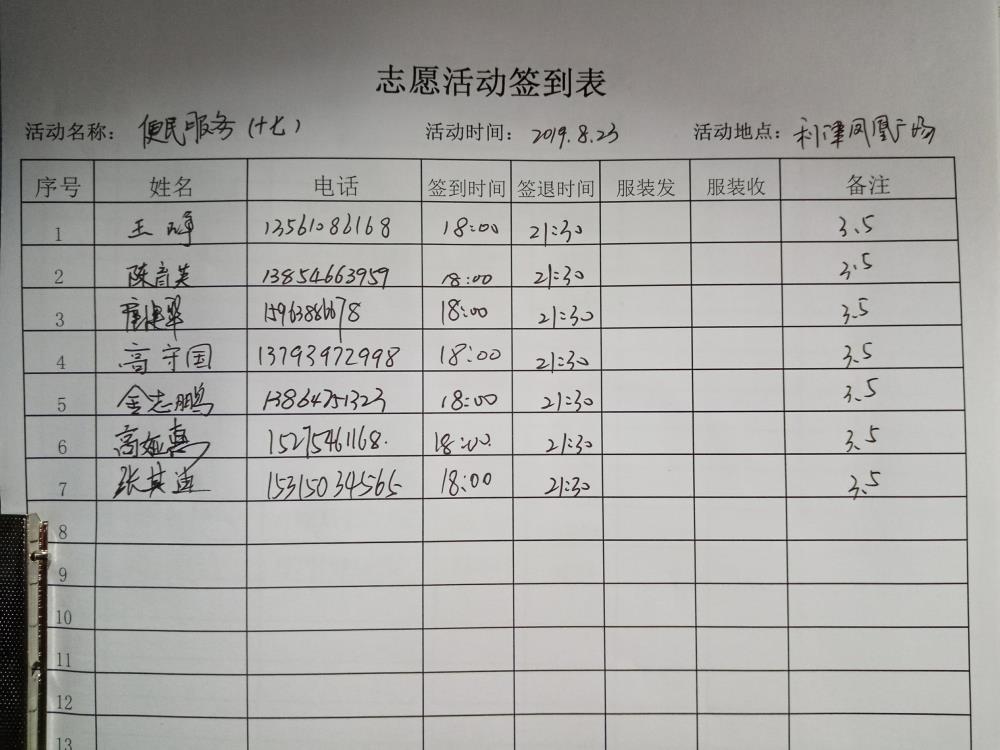 志愿活动签到表
活动名称： 便民服务（十七） 活动时间： 2019.8.23 活动地点： 利津凤凰广场
序号 姓名 电话 签到时间 签退时间 服装发 服装收 备注
1 王峰 13561086168 18:00 21:30 3.5
2 陈音美 13854663959 18:00 21:30 3.5
3 15963886678 18:00 21:30 3.5
4 高守国 13793972998 18:00 21:30 3.5
5 金志鹏 13864751323 18:00 21:30 3.5
6 高娅真 15275461168. 18:00 21:30 3.5
7 张其迪 15315034565 18:00 21:30 3.5
8
9
10
11
12
13